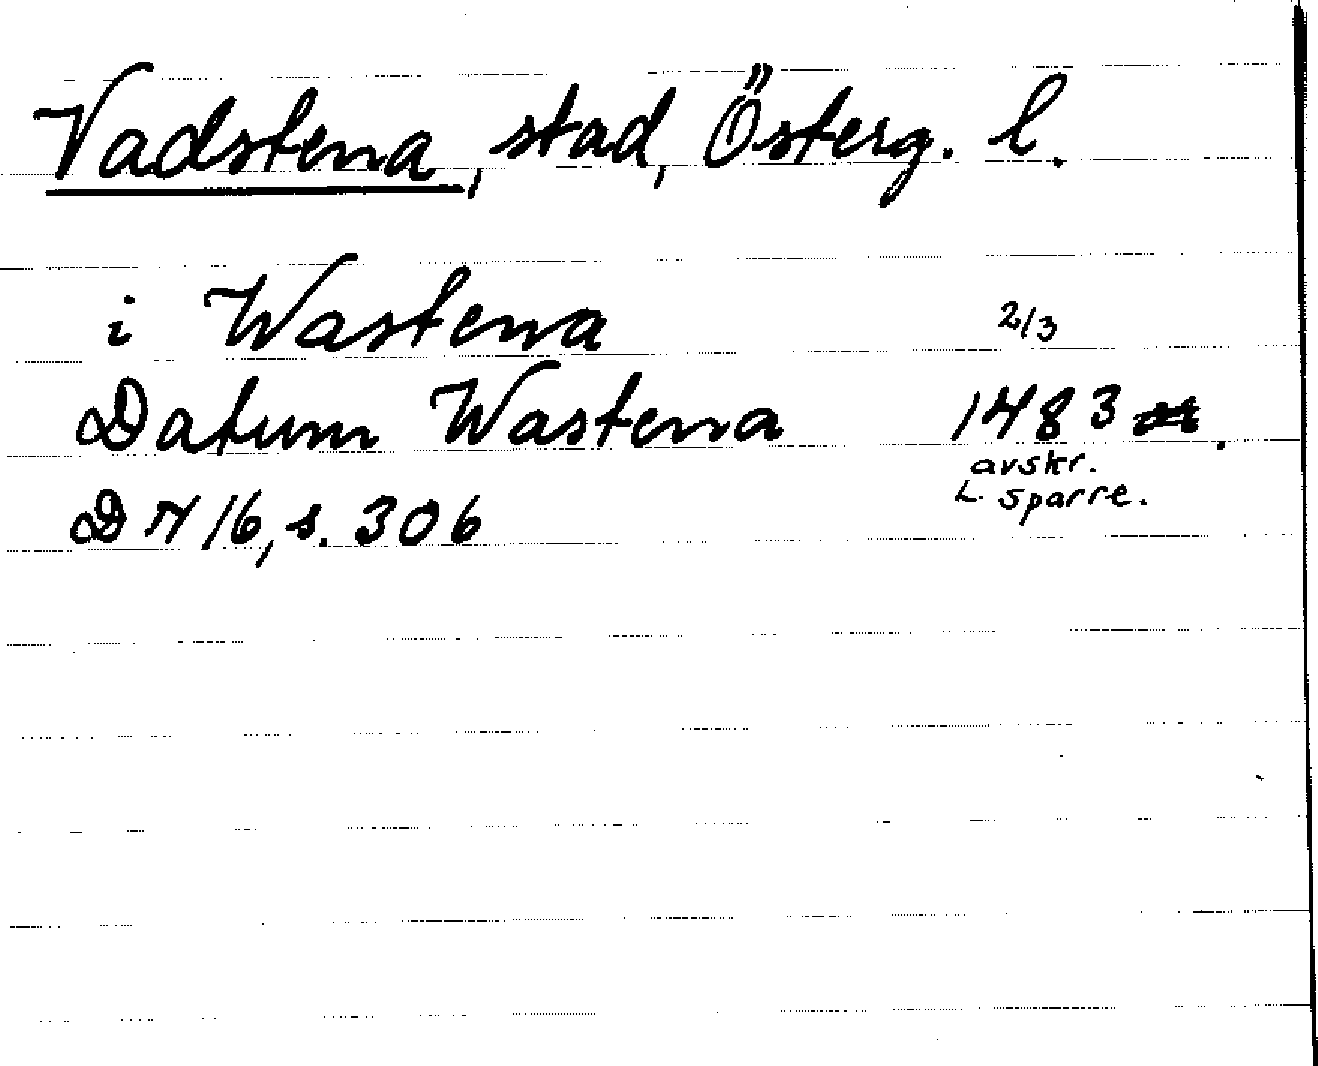 Vadstena, stad, Österg. l.
i Wastena 2/3
Datum Wastena 1483.
avskr.
L. Sparre.
DN 16, s. 306